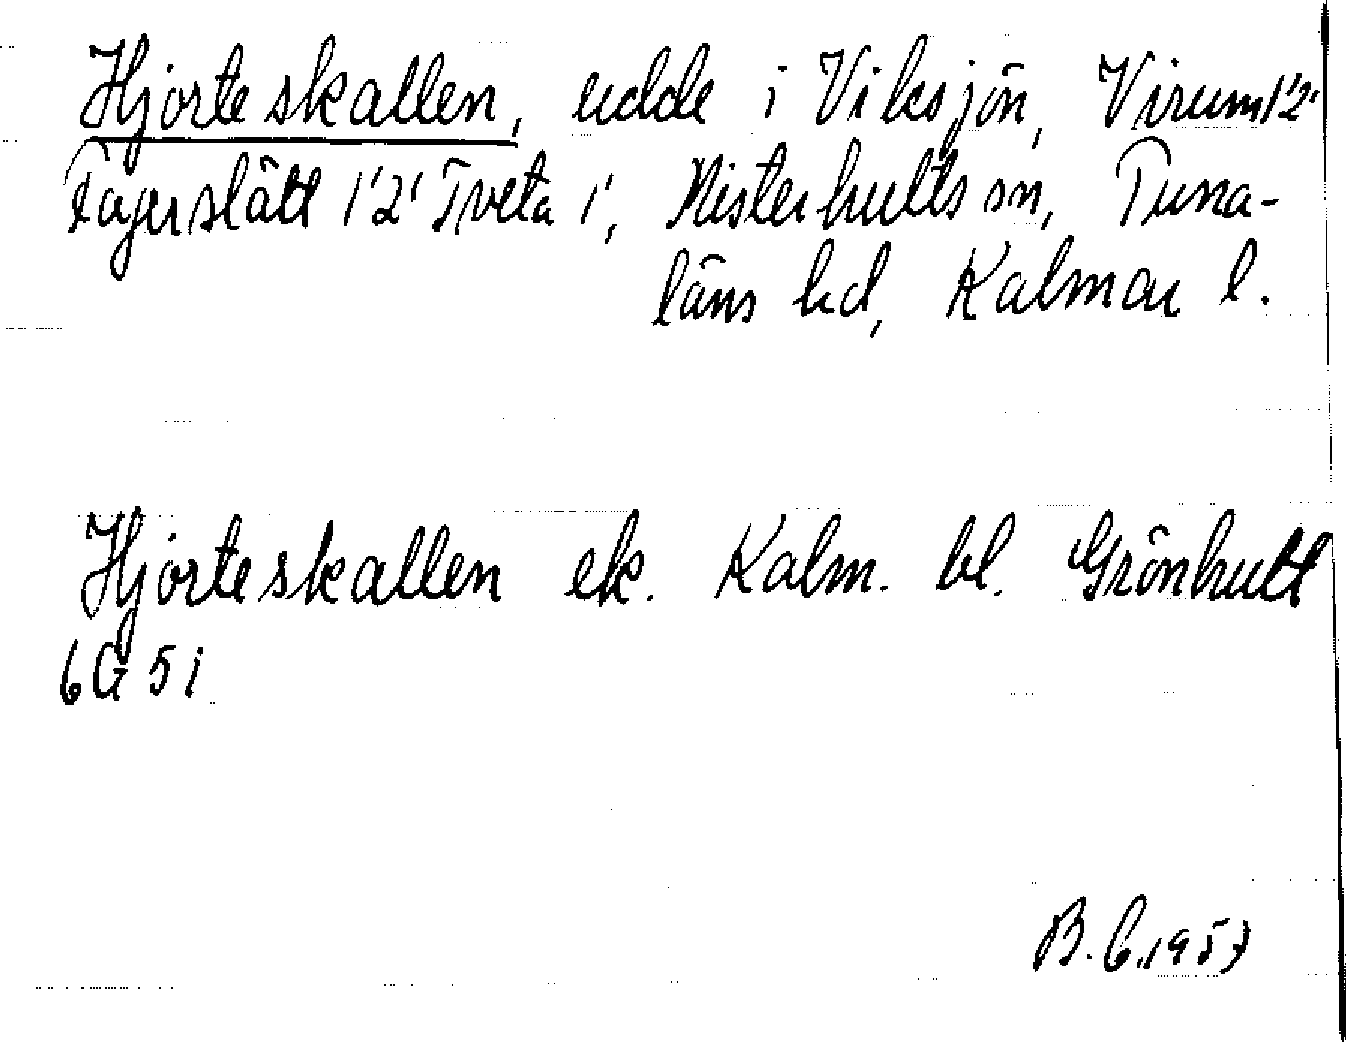 Hjorteskallen, udde i Viksjön, Virum 1'2'
Fagerslätt 1'2' Tveta 1', Misterhults sn, Tuna-
läns hd, Kalmar l.
Hjorteskallen ek. Kalm. bl. Grönhult
6G 5i
B.C. 1957